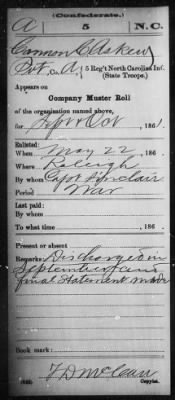 (Confederate.)
A 5 N.C.
Cannon C Askew
Pvt, Co. A, 5 Reg't North Carolina Inf.
(State Troops.)
Appears on
Company Muster Roll
of the organization named above,
for Sept & Oct, 186
Enlisted:
When May 22, 186
Where Raleigh
By whom Capt Sinclair
Period War
Last paid:
By whom
To what time , 186
Present or absent
Remarks: Discharged in
September
final statement made
Book mark:
T D McCain
Copyist.